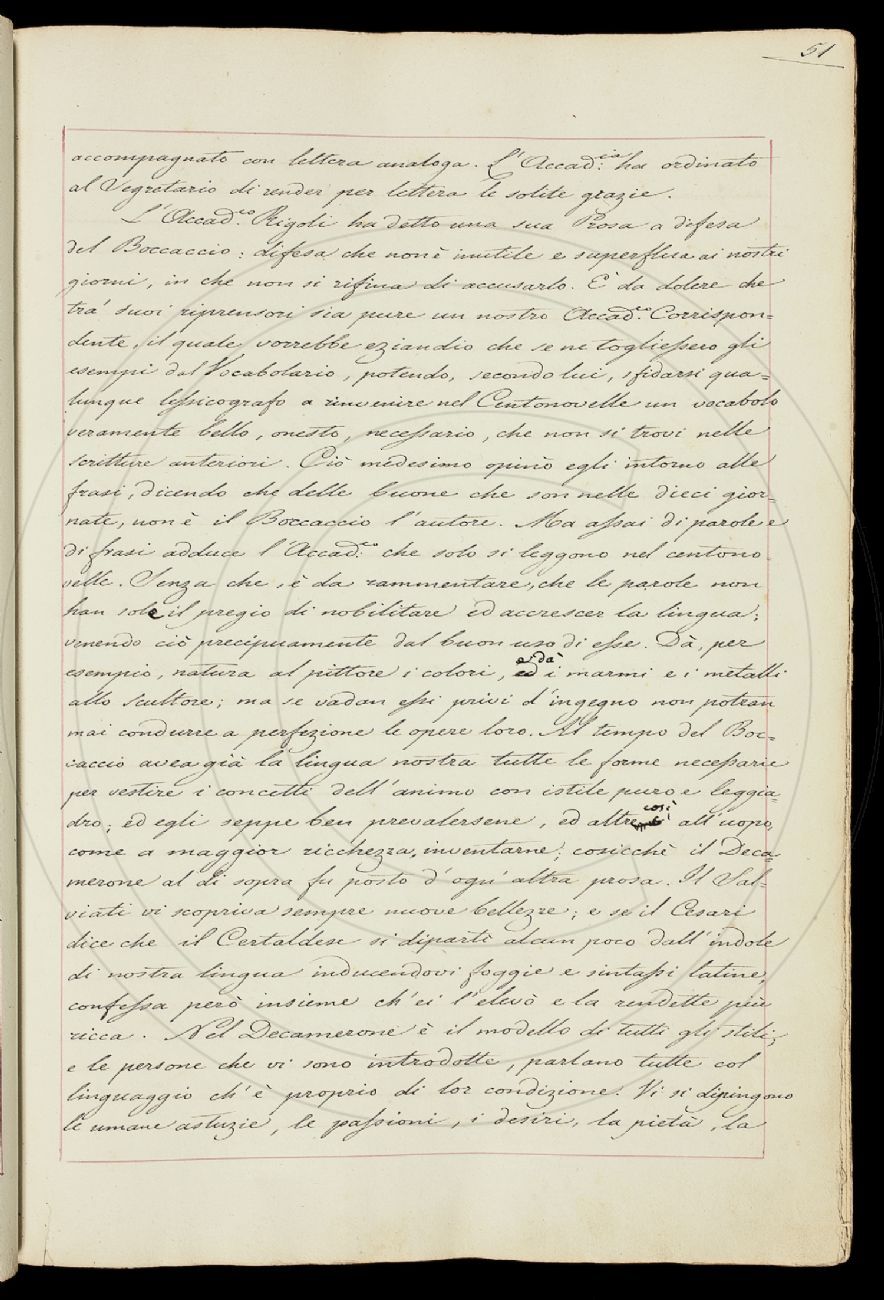 51
accompagnato con lettera analoga. L'Accad.ia ha ordinato
al Segretario di render per lettera le solite grazie.
L'Accad.co Rigoli ha detto una sua Prosa a difesa
del Boccaccio: difesa che non è inutile e superflua ai nostri
giorni, in che non si rifina di accusarlo. E' da dolere che
tra' suoi riprensori sia pure un nostro Accad.co Corrispon=
dente, il quale vorrebbe eziandio che se ne togliessero gli
esempi dal Vocabolario, potendo, secondo lui, sfidarsi qua=
lunque lessicografo a rinvenire nel Centonovelle un vocabolo
veramente bello, onesto, necessario, che non si trovi nelle
scritture anteriori. Ciò medesimo opinò egli intorno alle
frasi, dicendo che delle buone che son nelle dieci gior=
nate, non è il Boccaccio l'autore. Ma assai di parole e
di frasi adduce l'Accad.co che solo si leggono nel centono
velle. Senza che, è da rammentare, che le parole non
han sole il pregio di nobilitare ed accrescer la lingua;
venendo ciò precipuamente dal buon uso di esse. Dà, per
esempio, natura al pittore i colori, e dà i marmi e i metalli
allo scultore; ma se vadan essi privi d'ingegno non potran
mai condurre a perfezione le opere loro. Al tempo del Boc=
caccio avea già la lingua nostra tutte le forme necessarie
per vestire i concetti dell'animo con istile puro e leggia=
dro; ed egli seppe ben prevalersene, ed altre così all'uopo,
come a maggior ricchezza, inventarne; cosicchè il Deca=
merone al di sopra fu posto d'ogn'altra prosa. Il Sal=
viati vi scopriva sempre nuove bellezze; e se il Cesari
dice che il Certaldese si dipartì alcun poco dall'indole
di nostra lingua inducendovi foggie e sintassi latine,
confessa però insieme ch'ei l'elevò e la rendette più
ricca. Nel Decamerone è il modello di tutti gli stili;
e le persone che vi sono introdotte, parlano tutte col
linguaggio ch'è proprio di lor condizione. Vi si dipingono
le umane astuzie, le passioni, i desiri, la pietà, la